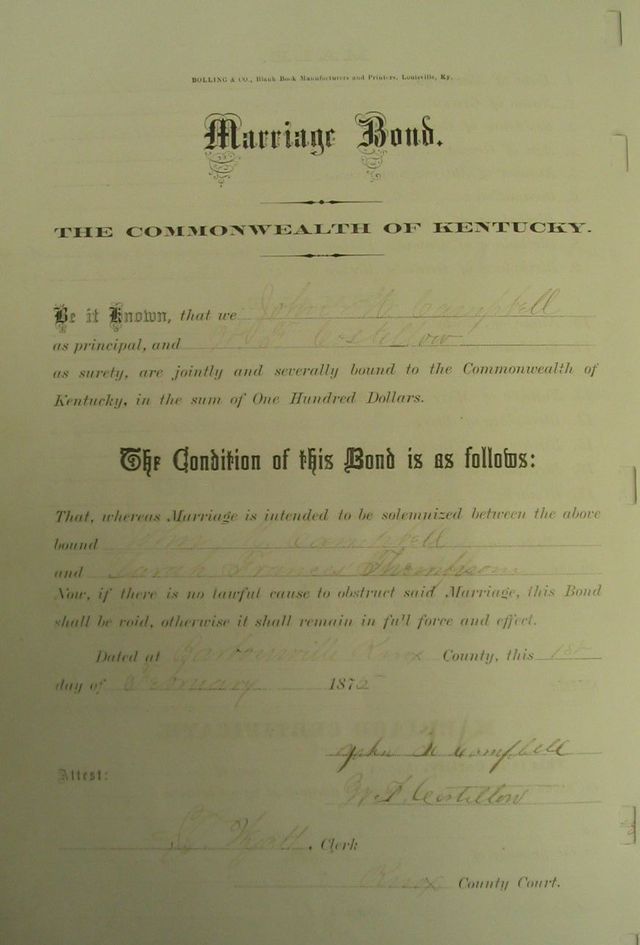 BOLLING & CO., Blank Book Manufacturers and Printers, Louisville, Ky.
Marriage Bond.
THE COMMONWEALTH OF KENTUCKY.
Be it Known, that we John H Campbell
as principal, and W. F. Costellow
as surety, are jointly and severally bound to the Commonwealth of
Kentucky, in the sum of One Hundred Dollars.
The Condition of this Bond is as follows:
That, whereas Marriage is intended to be solemnized between the above
bound John H. Campbell
and Sarah Frances Thompson
Now, if there is no lawful cause to obstruct said Marriage, this Bond
shall be void, otherwise it shall remain in full force and effect.
Dated at Barbourville Knox County, this 1st
day of February 1875
John H Campbell
Attest:
W. F. Costellow
Wyatt, Clerk
Knox County Court.